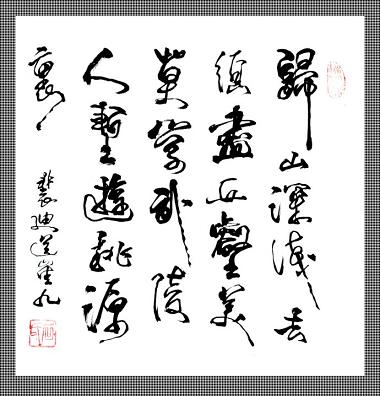 歸山深淺去
須盡丘壑美
莫學武陵
人暫遊桃源
裏 裴迪送崔九